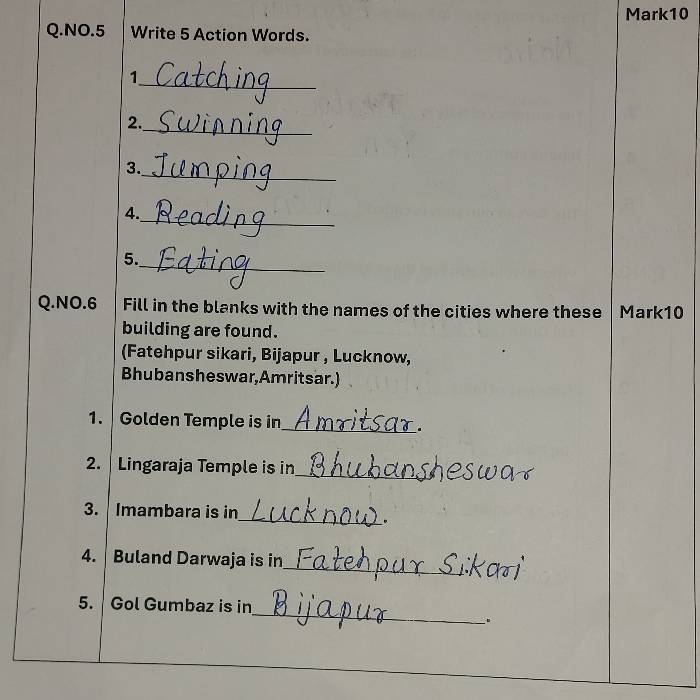 Mark10
Q.NO.5 Write 5 Action Words.
1 Catching
2. Swinning
3. Jumping
4. Reading
5. Eating
Q.NO.6 Fill in the blanks with the names of the cities where these Mark10
building are found.
(Fatehpur sikari, Bijapur , Lucknow,
Bhubansheswar,Amritsar.)
1. Golden Temple is in Amritsar.
2. Lingaraja Temple is in Bhubansheswar
3. Imambara is in Lucknow.
4. Buland Darwaja is in Fatehpur Sikari
5. Gol Gumbaz is in Bijapur.